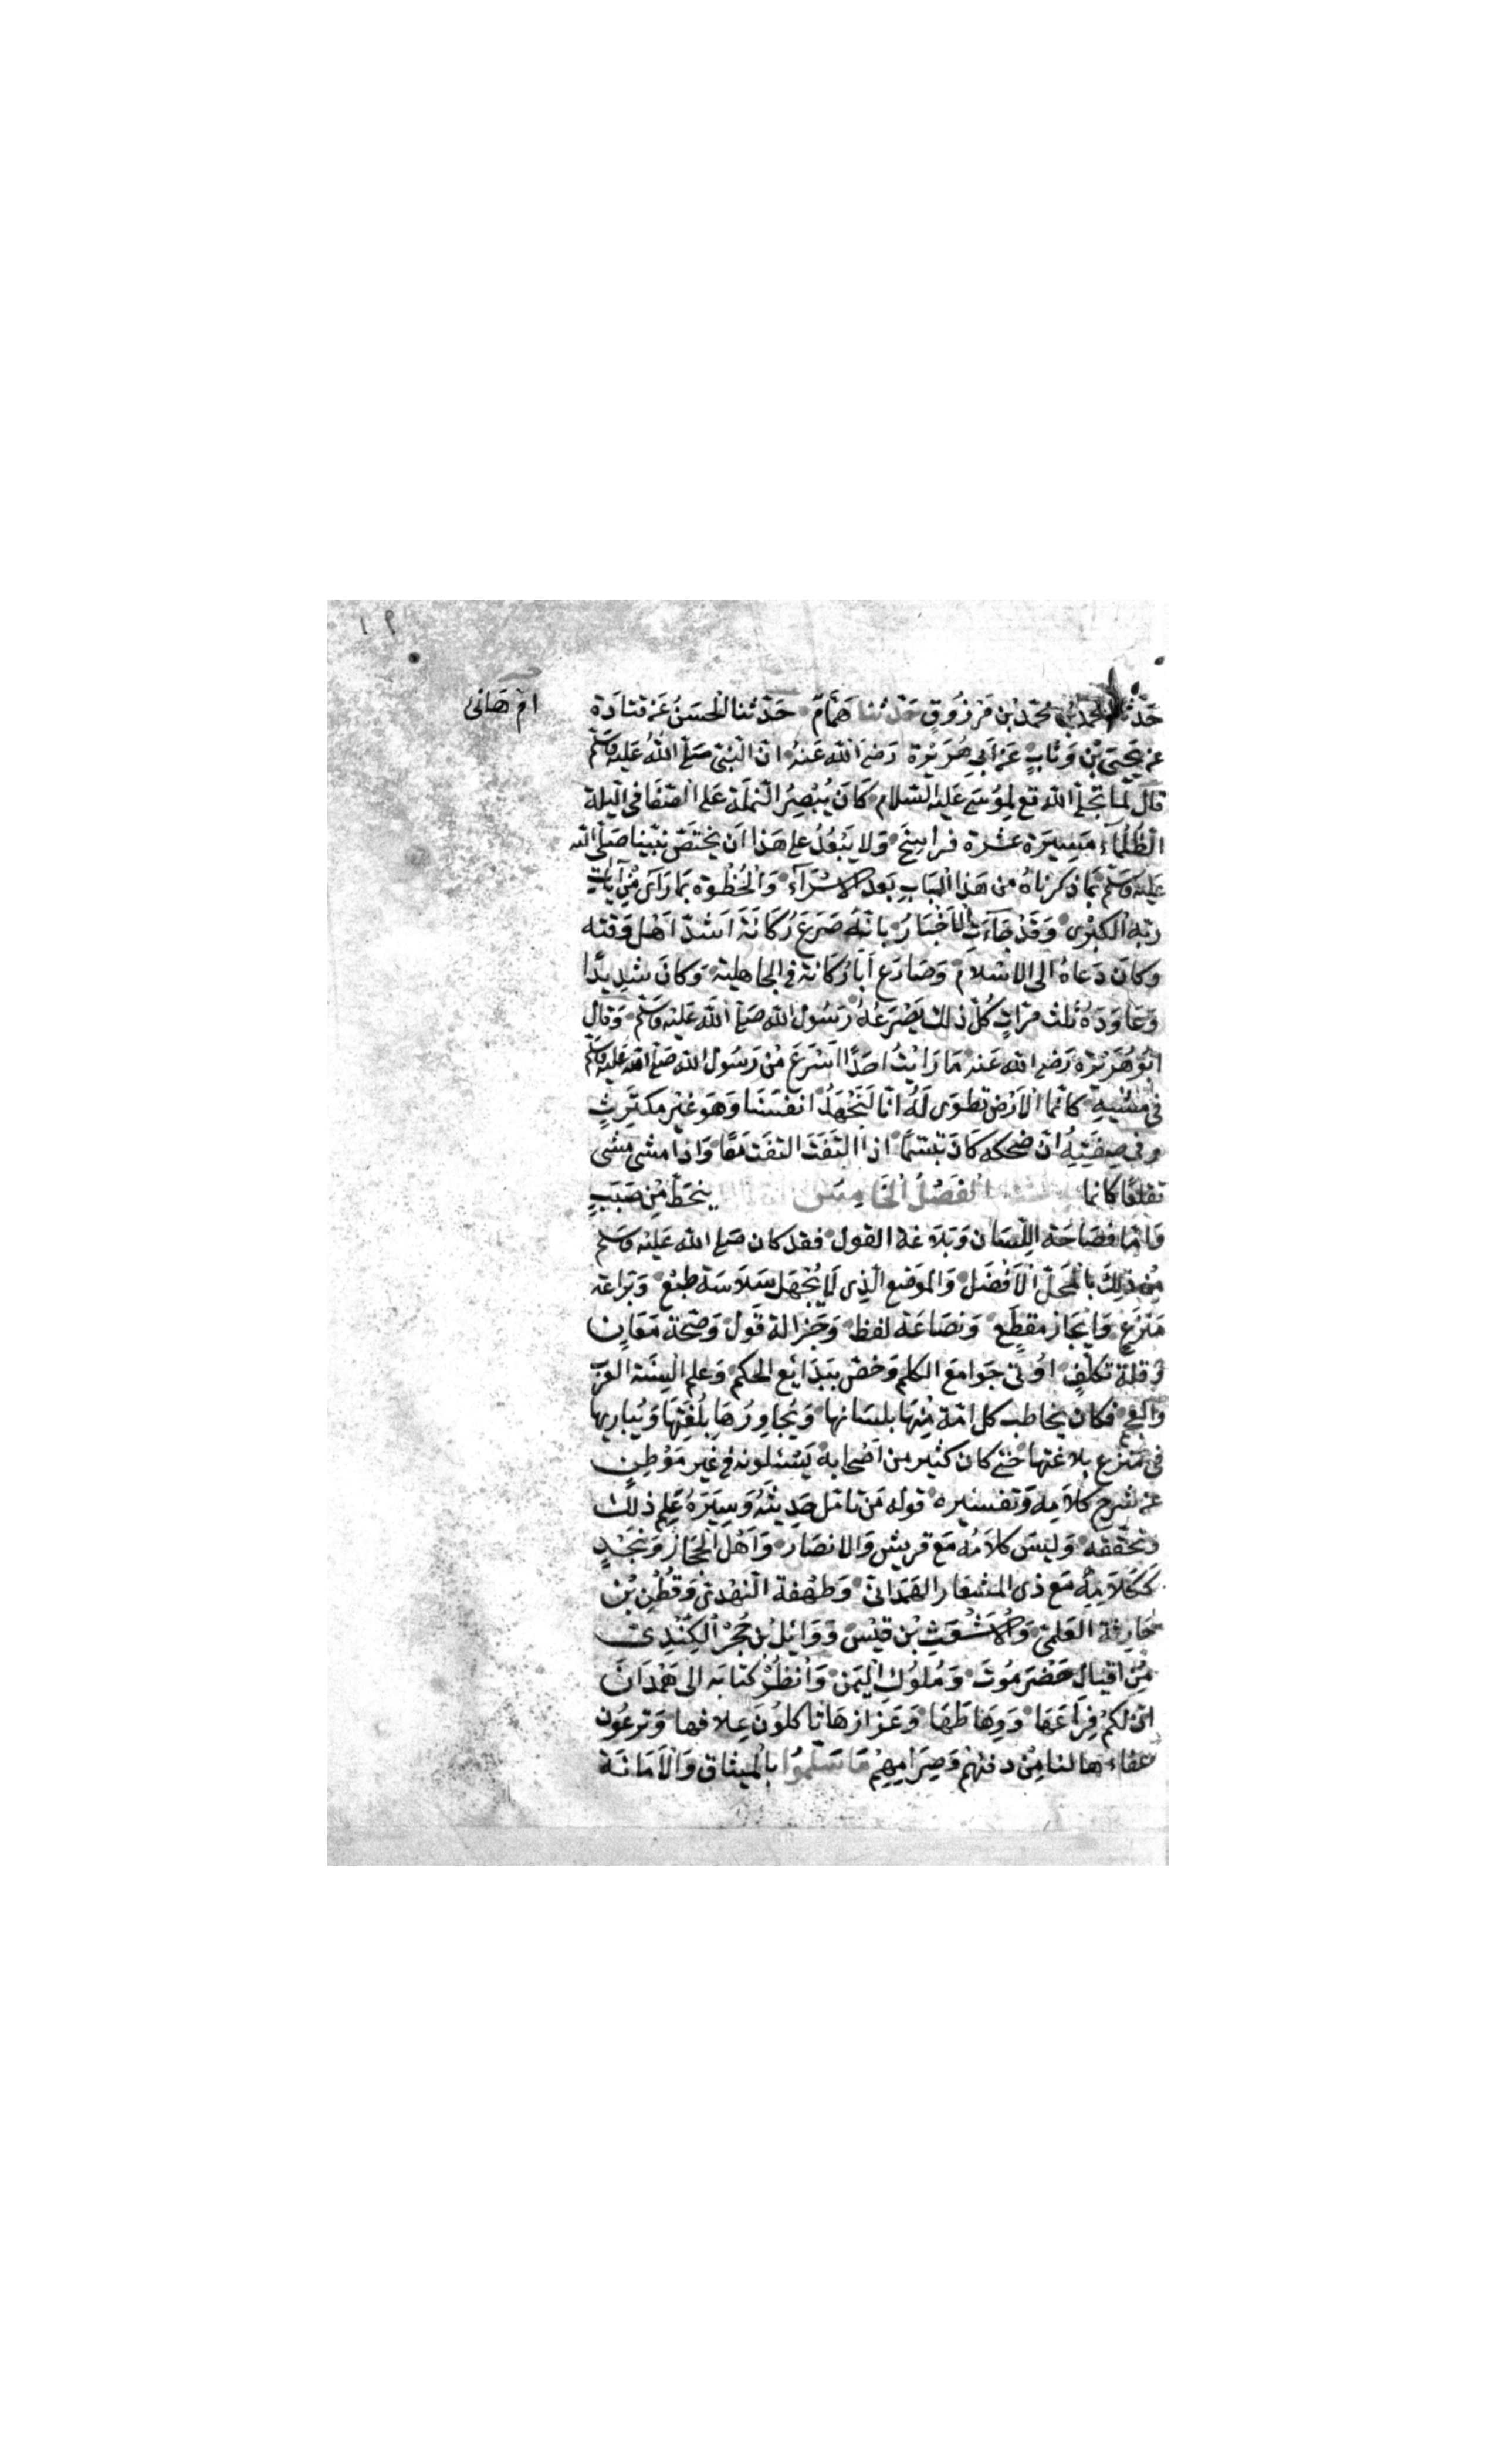 ١٩
ام هانى
حَدّثنا محمد بن محمّد بْن مَرْزُوقٍ حَدّثنا هَمَّامٌ حَدّثنا الْحَسَنُ عَنْ قتادَة
عن يَحيىَ بْن وَثابٍ عَنْ اَبِي هُرَيْرَة رَضيَ الله عَنهُ ان النبيّ صَلى اللهُ عَليه وسلم
قالَ لمّا تجلّى الله تع لِمُوسَى عَليه السّلام كَانَ يُبْصِرُ النملَة عَلى الصّفَا فى اليلة
الظلماءِ مَسِيرَة عشرة فراسِخَ وَلا يَبْعُدُ على هَذا اَن يختَصّ نبيّنا صَلى الله
عَليه وسلم بما ذكرناهُ من هَذا الْبَابِ بَعدَ الاسْرَآءِ وَالْحُظْوة بمَا رَآى مِنْ آيَاتِ
ربّهِ الْكبْرى وَقَدْ جَآءَت الاَخْبَارُ بانّهُ صَرَعَ رُكَانَةَ اَشدّ اَهْل وَقته
وكانَ دَعاهُ الى الاسْلام وَصَارَعَ اَبَا رُكَانة في الجاهلية وَكانَ شدِيدًا
وَعَاوَدَهُ ثلث مَرّاتٍ كُلّ ذلك يَصْرَعُهُ رَسُول الله صَلى الله عَليه وَسَلم وَقال
ابُو هُرَيْرَة رَضي الله عَنه مَا رَايْتُ احَدًا اسْرَعَ مِنْ رَسُول الله صَلى الله عَليه وسلم
فى مِشْيَتِهِ كانّما الاَرْض تطوَى لَهُ انّا لَنَجْهَدُ انفسَنَا وَهوَ غيْر مكتَرِثٍ
وفى صِفَتِهِ انّ ضحكه كَانَ تبسّمًا اذا الْتَفَتَ التفَت مَعًا وَاذا مشى مشى
تقلعًا كانما الْفَصْلُ الْخَامِسُ ينحَطّ مِنْ صَبَبٍ
وَامّا فصَاحَة اللّسَان وَبَلاَغة القول فقد كان صَلى الله عَليه وسلم
مِن ذلِكَ بالْمَحَلّ الاَفْضَل وَالموَضع الّذِى لاَ يُجْهَل سَلاَسَة طبْع وَبَرَاعَة
مَنزَعٍ وَايجَاز مقطَعٍ وَنصَاعَة لفظ وَجَزالة قول وَصحّة مَعَانٍ
وَقلّة تكَلّفٍ اوُتى جَوامعَ الكلم وَخصّ ببَدَايع الحكم وَعلم الْسِنَة العَرَب
فكان يخاطب كل امّة مِنْهَا بلسَانها وَيُحاوِرُهَا بلُغتِهَا وَيُباريها
فى مَنْزعِ بلاغتها حَتى كان كثير من اَصْحابه يَسْئلونه فى غَير مَوْطِنٍ
عَن شرحِ كلاَمِه وَتفسيره قوله مَن تامّل حَدِيثَهُ وَسِيَرَهُ عَلِم ذلك
وَتحققه وَليسَ كلاَمُه مَع قريش وَالانصَار وَاَهْل الحجَاز وَنَجْدٍ
ككَلاَمِهُ مَع ذى المشعَار الهمَدَانى وَطهْفة النّهْدىّ وَقُطْنِ بْن
حَارِثة العَلمى وَالاَشْعَثِ بْن قيْس وَوَايْل بْن حُجْر الكِنْدِىّ
مِن اقيال حَضرَمَوت وَمُلُوك اليَمَن وَانظُرْ كتابَه الى هَمْدَانَ
انّ لكم فِرَاعَهَا وَوِهَاطَهَا وَعَزَازَهَا تاكلوُنَ عِلافهَا وَترعَون
عفاءها لنا مِنْ دفئهمْ وَصِرَامِهِمْ مَا سَلّمُوا بالمِيثاق وَالاَمَانَة